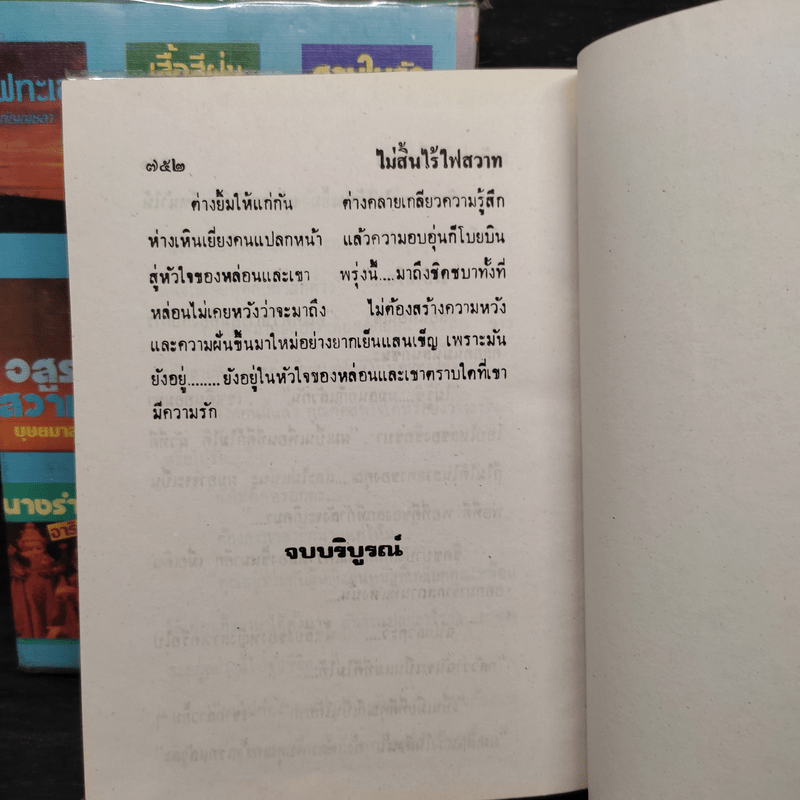 เสื้อสีฝุ่น
อสูร
สวาท
บุษยมาส
นางรำ
๗๕๒ ไม่สิ้นไร้ไฟสวาท
ต่างยิ้มให้แก่กัน ต่างคลายเกลียวความรู้สึก
ห่างเหินเยี่ยงคนแปลกหน้า แล้วความอบอุ่นก็โบยบิน
สู่หัวใจของหล่อนและเขา พรุ่งนี้....มาถึงชิดชบาทั้งที่
หล่อนไม่เคยหวังว่าจะมาถึง ไม่ต้องสร้างความหวัง
และความฝันขึ้นมาใหม่อย่างยากเย็นแสนเข็ญ เพราะมัน
ยังอยู่........ยังอยู่ในหัวใจของหล่อนและเขาตราบใดที่เขา
มีความรัก
จบบริบูรณ์